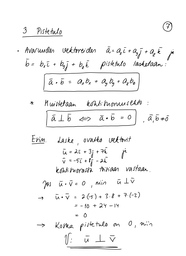 7
3. Pistetulo
• Avaruuden vektoreiden ā = a₁ī + a₂j̄ + a₃k̄ ja
b̄ = b₁ī + b₂j̄ + b₃k̄ pistetulo lasketaan:
ā · b̄ = a₁b₁ + a₂b₂ + a₃b₃
* Muistetaan kohtisuoruusehto:
ā ⊥ b̄ ⇔ ā · b̄ = 0 , ā, b̄ ≠ 0̄
Esim. Laske, ovatko vektorit
ū = 2ī + 3j̄ + 7k̄ ja
v̄ = -5ī + 8j̄ - 2k̄
kohtisuorassa toisiaan vastaan
Jos ū · v̄ = 0, niin ū ⊥ v̄
→ ū · v̄ = 2·(-5) + 3·8 + 7·(-2)
= -10 + 24 - 14
= 0
→ Koska pistetulo on 0, niin
V: ū ⊥ v̄